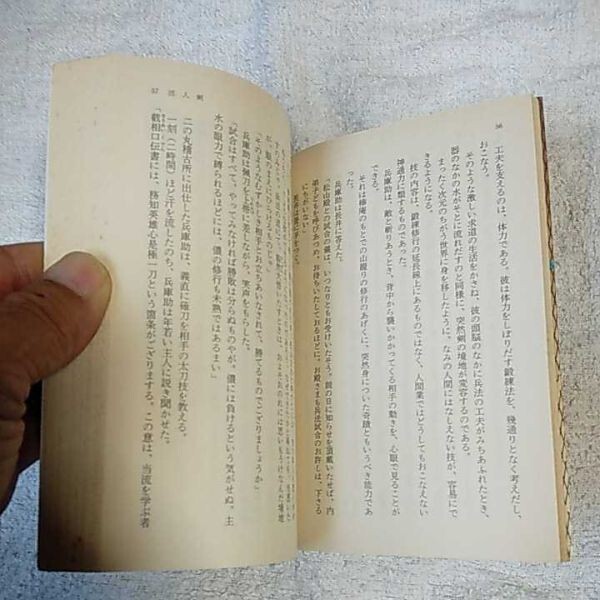 56
工夫を支えるのは、体力である。彼は体力をしぼりだす鍛練法を、幾通りとなく考えだし、
おこなう。
そのような激しい求道の生活をかさね、彼の頭脳のなかに兵法の工夫がみちあふれたとき、
器のなかの水がそとに流れだすのと同様に、突然剣の境地が変容するのである。
まったく次元のちがう世界に身を移したように、なみの人間にはなしえない技が、容易にで
きるようになる。
技の内容は、鍛練の修行の延長線上にあるものではなく、人間業ではどうしてもおこなえない
神通力に類するものであった。
兵庫助は、敵と斬りあうとき、背中から襲いかかってくる相手の動きを、心眼で見ることが
できる。
それは
のもとでの山籠りの修行のあげくに、突然身についた奇蹟ともいうべき能力であ
った。
兵庫助は長井に答えた。
「松山殿との試合の儀は、いつなりともお受けいたそう。前の日に知らせを頂戴いたせば、内
弟子どもを呼びあつめ、お待ちいたしておるほどに、お殿さまも兵法試合のお許しは、下さる
にちがいない」
57 活人剣
「そのようなむずかしき相手とお立ちあいなされて、勝てるものでござりましょうか」
兵庫助は佩刀を
に差しながら、笑声をもらした。
「試合はすべて、やってみなければ勝敗は分らぬものやが。儂には負けるという気がせぬ。主
水の眼力で縛られるほどには、儂の修行も未熟ではあるまい」
二の丸稽古所に出仕した兵庫助は、義直に
刀を相手の太刀技を教える。
一刻（二時間）ほど汗を流したのち、兵庫助は年若い主人に説き聞かせた。
「截相口伝書には、
知英雄心是極一刀という箇条がござりまする。この意は、当流を学ぶ者